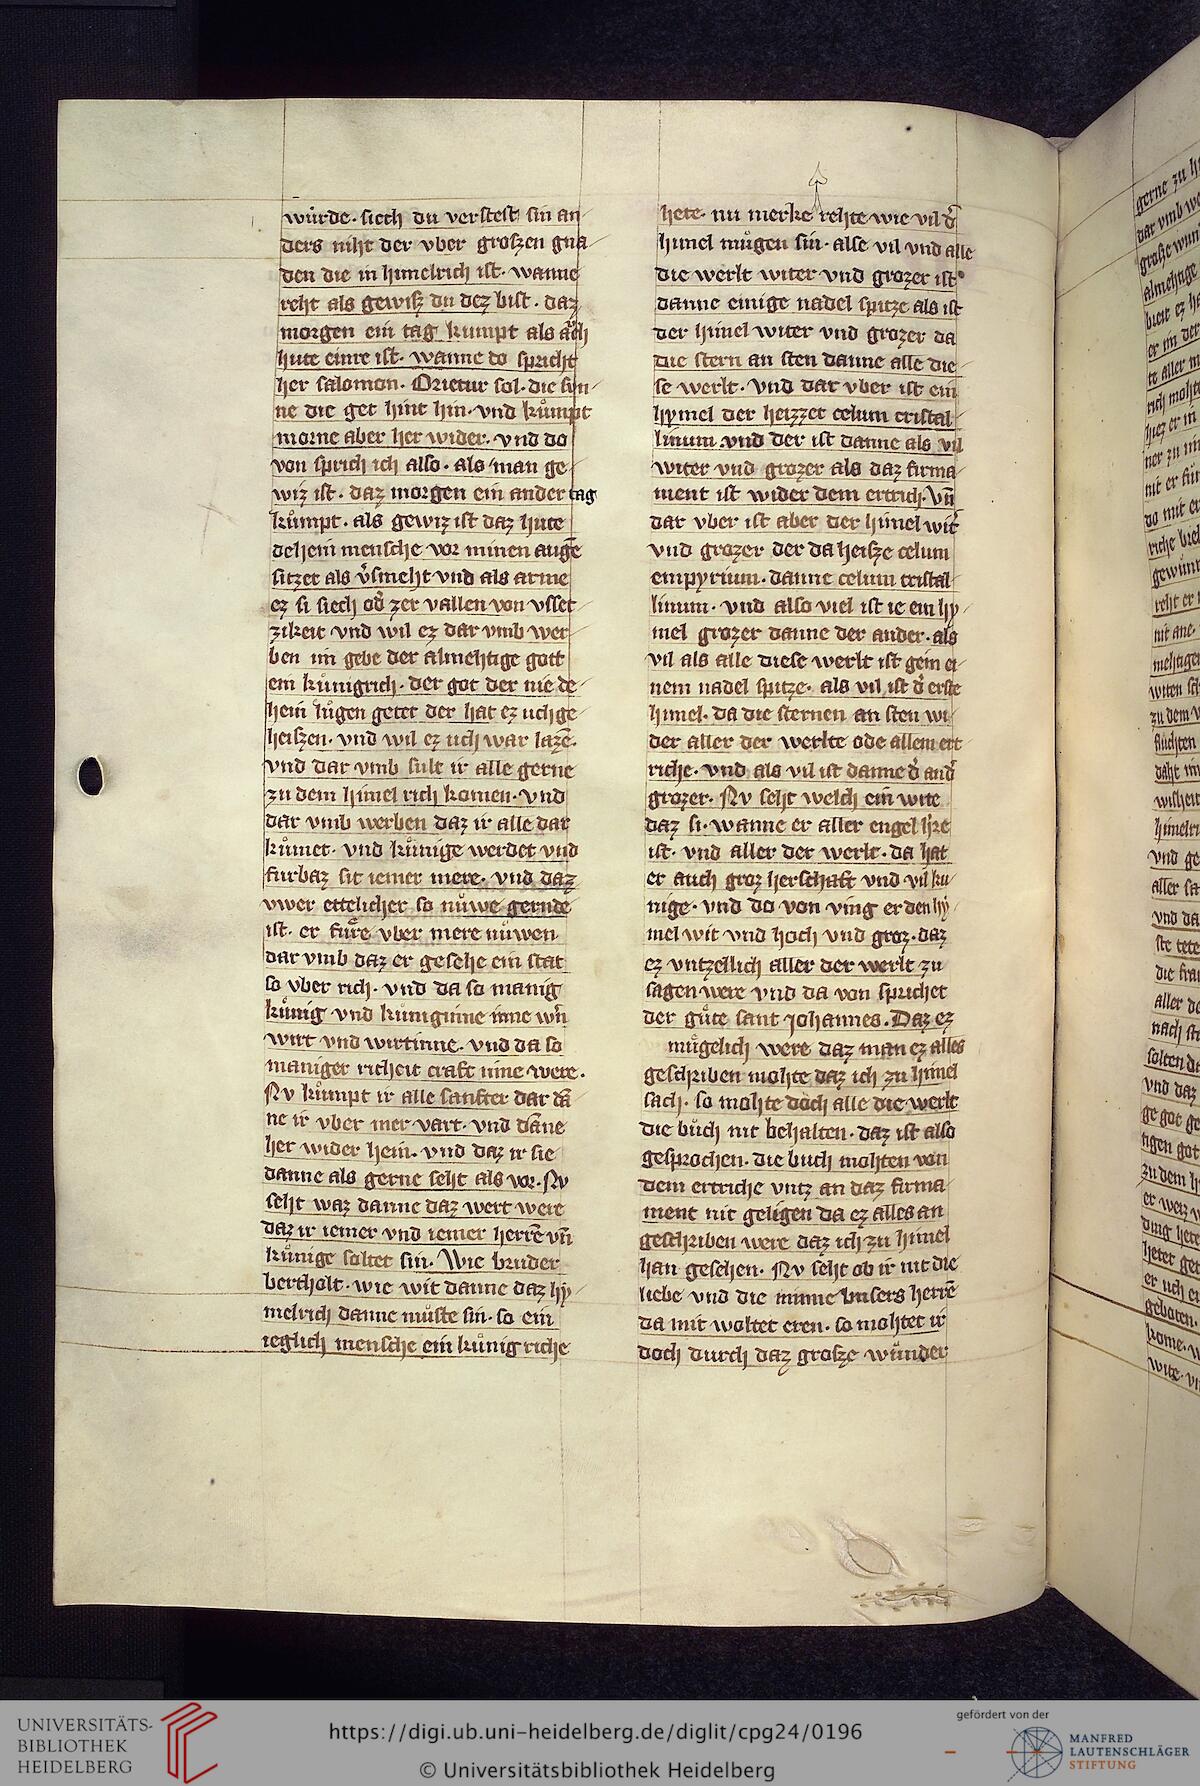 wuͦrde· siech du verstest sin an-
ders niht der vber groszen gna-
den die in himelrich ist· wanne
reht als gewisz du dez bist· daz
morgen ein tag kumpt als auch
hute einre ist· wanne do spricht
her salomon· Orietur sol· die sun-
ne die get hint hin· vnd kuͦmpt
morne aber her wider· vnd do
von sprich ich also· als man ge-
wiz ist· daz morgen ein ander tag
kuͦmpt· als gewiz ist daz hute
dehein mensche vor minen augē
sitzet als v̓smeht vnd als arme
ez si siech od̓ zer vallen von vsset-
zikeit vnd wil ez dar vmb wer-
ben im gebe der almehtige gott
ein kuͦnigrich· der got der nie de-
hein luͦgen getet der hat ez uch ge-
heiszen· vnd wil ez uch war lazē·
vnd dar vmb sult ir alle gerne
zu dem himel rich komen· vnd
dar vmb werben daz ir alle dar
kuͦmet· vnd kuͦnige werdet vnd
furbaz sit iemer mere· vnd daz
vwer ettelicher so nuwe gernde
ist· er fure vber mere nuͦwen
dar vmb daz er gesehe ein stat
so vber rich· vnd da so manig
kuͦnig vnd kuͦniginne inne wn̄
wirt vnd wirtinne· vnd da so
maniger richeit craft inne were·
Nv kuͦmpt ir alle sanfter dar dā-
ne ir vber mer vart· vnd dāne
her wider hein· vnd daz ir sie
danne als gerne seht als vor· Nv
seht waz danne daz wert were
daz ir iemer vnd iemer herrē vn̄
kuͦnige soltet sin· Wie bruder
bertholt· wie wit danne daz hy-
melrich danne muͦste sin· so ein
ieglich mensche ein kuͦnig riche
hete· nu merke rehte wie vil d̓
himel muͦgen sin· alse vil vnd alle
die werlt witer vnd grozer ist
danne einige nadel spitze als ist
der himel witer vnd grozer da
die stern an sten danne alle die-
se werlt· vnd dar vber ist ein
hymel der heizzet celum cristal-
linum vnd der ist danne als vil
witer vnd grozer als daz firma-
ment ist wider dem ertrich· Vn̄
dar vber ist aber der himel wit̓
vnd grozer der da heisze celum
empyrium· danne celum cristal-
linum· vnd also viel ist ie ein hy-
mel grozer danne der ander· als
vil als alle diese werlt ist gein ei-
nem nadel spitze· als vil ist d̓ erste
himel· da die sternen an sten wi-
der aller der werlte ode allem ert-
riche· vnd als vil ist danne d̓ and̓
grozer· Nv seht welch ein wite
daz si· wanne er aller engel h̓re
ist· vnd aller der werlt· da hat
er auch groz herschaft vnd vil ku-
nige· vnd do von ving er den hy-
mel wit vnd hoch vnd groz· daz
ez vntzellich aller der werlt zu
sagen were vnd da von sprichet
der guͦte sant Johannes· Daz ez
muͦgelich were daz man ez alles
geschriben mohte daz ich zu himel
sach· so mohte doch alle die werlt
die buͦch nit behalten· daz ist also
gesprochen· die buch mohten von
dem ertriche vntz an daz firma-
ment nit geligen da ez alles an
geschriben were daz ich zu himel
han gesehen· Nv seht ob ir nit die
liebe vnd die minne vnsers herrē
da mit woltet eren· so mohtet ir
doch durch daz grosze wuͦnder
UNIVERSITÄTS-
BIBLIOTHEK
HEIDELBERG
https://digi.ub.uni-heidelberg.de/diglit/cpg24/0196
© Universitätsbibliothek Heidelberg
gefördert von der
MANFRED
LAUTENSCHLÄGER
STIFTUNG